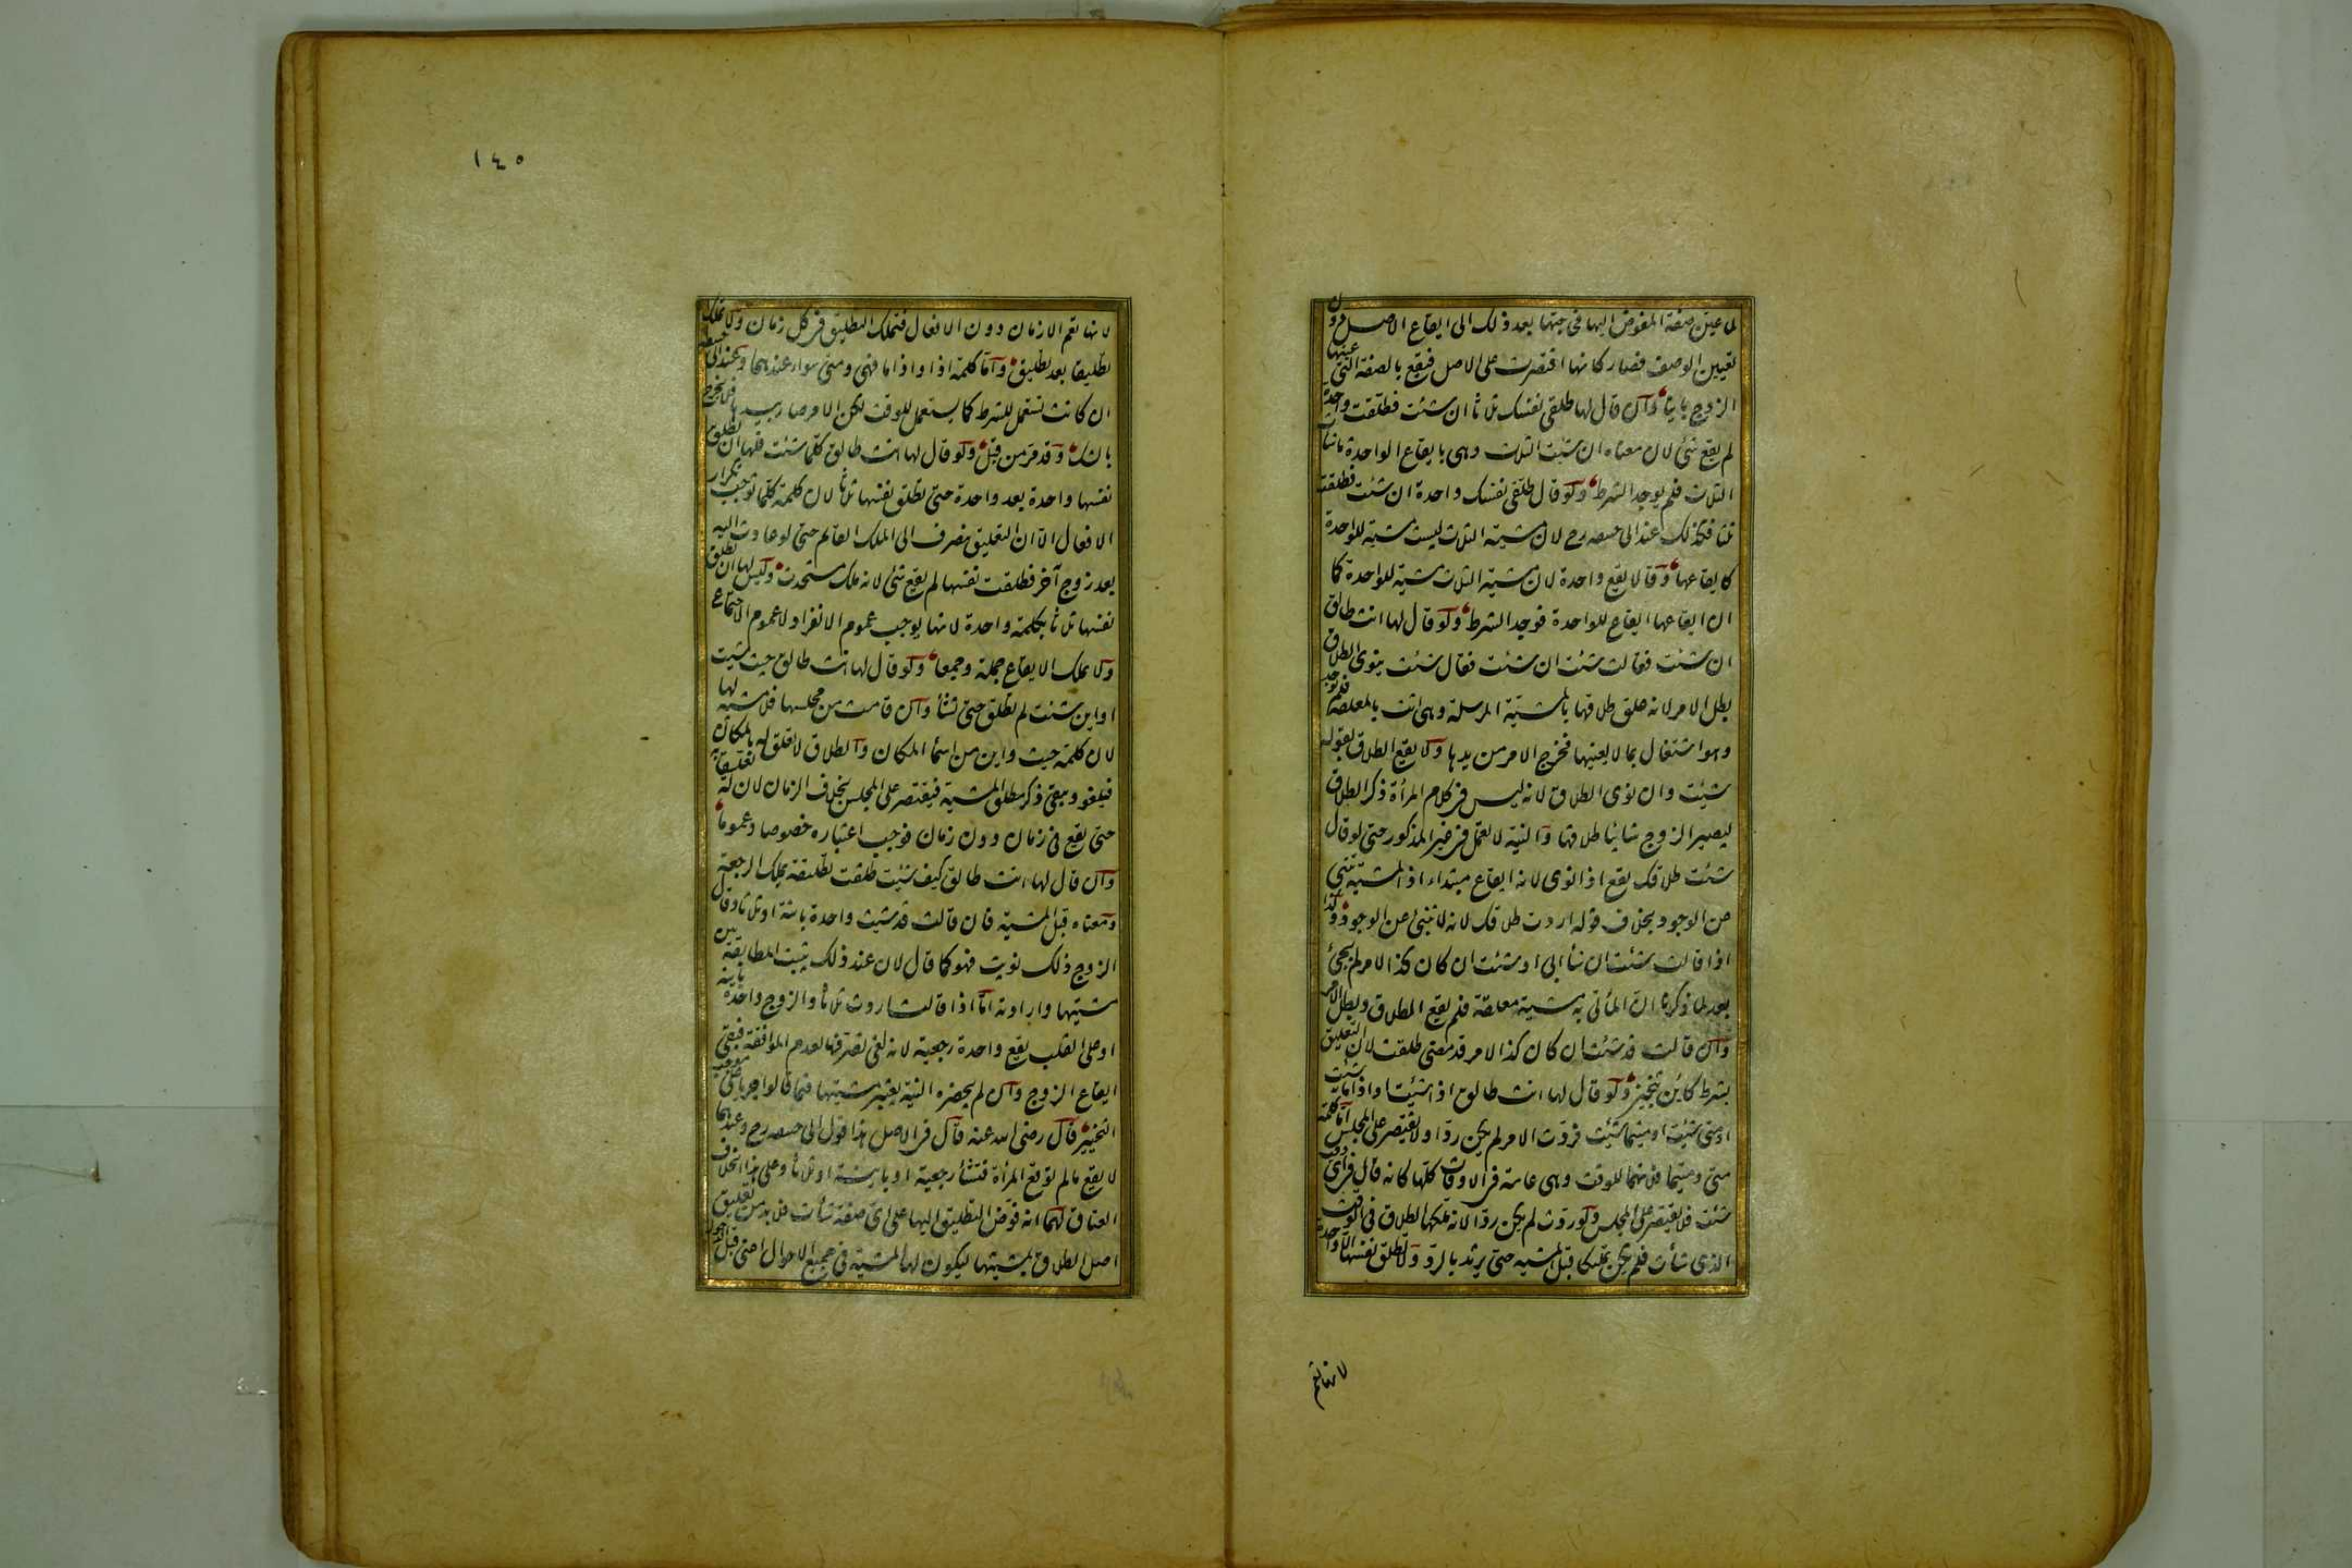 لما عين صفة المفوض اليها فحاجتها بعد ذلك الى ايقاع الاصل دون
تعيين الوصف فصار كانها اقتصرت على الاصل فيقع بالصفة التي عينها
الزوج باينا وان قال لها طلقي نفسك ثلاثا ان شئت فطلقت واحدة
لم يقع شئ لان معناه ان شئت الثلاث وهي بايقاع الواحدة ما شاءت
الثلاث فلم يوجد الشرط ولو قال طلقي نفسك واحدة ان شئت فطلقت
ثلثا فكذلك عند ابي حنيفه رح لان مشية الثلاث ليست مشية للواحدة
كايقاعها وقالا يقع واحدة لان مشية الثلاث مشية للواحدة كما
ان ايقاعها ايقاع للواحدة فوجد الشرط ولو قال لها انت طالق
ان شئت فقالت شئت ان شئت فقال شئت ينوي الطلاق
بطل الامر لانه علق طلاقها بالمشية المرسلة وهي اتت بالمعلقة فلم يوجد
وهو اشتغال بما لا يعنيها فخرج الامر من يدها ولا يقع الطلاق بقوله
شئت وان نوى الطلاق لانه ليس في كلام المرأة ذكر الطلاق
ليصير الزوج شائيا طلاقها والنية لا تعمل في غير المذكور حتى لو قال
شئت طلاقك يقع اذا نوى لانه ايقاع مبتداء اذ المشية تنبئ
عن الوجود بخلاف قوله اردت طلاقك لانه لا تنبئ عن الوجود وكذا
اذا قالت شئت ان شاء ابي او شئت ان كان كذا الامر لم يجئ
بعد لما ذكرنا ان المأتي به مشية معلقة فلم يقع الطلاق وبطل الامر
وان قالت قد شئت ان كان كذا الامر قد مضى طلقت لان التعليق
بشرط كاين تنجيز ولو قال لها انت طالق اذا شئت او اذا ما شئت
او متى شئت او متيما شئت فردت الامر لم يكن ردا ولا يقتصر على المجلس اما كلمة
متى ومتيما فلانهما للوقت وهي عامة في الاوقات كلها كانه قال في اي وقت
شئت فلا يقتصر على المجلس ولو ردت لم يكن ردا لانه ملكها الطلاق في الوقت
الذي شاءت فلم يكن تمليكا قبل المشيه حتى يرتد بالرد ولا تطلق نفسها الا واحدة
لانها تعم
١٤٥
لانها تعم الازمان دون الافعال فتملك التطليق في كل زمان ولا تملك
تطليقا بعد تطليق واما كلمة اذا واذا ما فهي ومتى سواء عندهما وعند ابي حنيفه
ان كانت تستعمل للشرط كما يستعمل للوقت لكن الامر صار بيدها فلا يخرج
بالشك وقد مر من قبل ولو قال لها انت طالق كلما شئت فلها ان تطلق
نفسها واحدة بعد واحدة حتى تطلق نفسها ثلاثا لان كلمة كلما توجب تكرار
الافعال الا ان التعليق ينصرف الى الملك القائم حتى لو عادت اليه
بعد زوج آخر فطلقت نفسها لم يقع شئ لانه ملك مستحدث وليس لها ان تطلق
نفسها ثلاثا بكلمة واحدة لانها يوجب عموم الانفراد لا عموم الاجتماع
ولا يملك الايقاع جملة وجمعا ولو قال لها انت طالق حيث شئت
او اين شئت لم تطلق حتى تشاء وان قامت من مجلسها فلا مشية لها
لان كلمة حيث واين من اسماء المكان والطلاق لا تعلق له بالمكان
فيلغو ويبقى ذكر مطلق المشية فيقتصر على المجلس بخلاف الزمان لان له تعليقا به
حتى يقع في زمان دون زمان فوجب اعتباره خصوصا وعموما
وان قال لها انت طالق كيف شئت طلقت تطليقة يملك الرجعة
ومعناه قبل المشية فان قالت قد شئت واحدة باينة او ثلاثا وقال
الزوج ذلك نويت فهو كما قال لان عند ذلك يثبت المطابقة بين
مشيتها وارادته اما اذا قالت اردت ثلاثا والزوج واحدة باينة
او على القلب يقع واحدة رجعية لانه لغى تصرفها لعدم الموافقة فبقي
ايقاع الزوج وان لم يحضره النية يعتبر مشيتها فيما قالوا جريا على موجب
التخيير قال رضي الله عنه قال في الاصل هذا قول ابي حنيفه رح وعندهما
لا يقع ما لم توقع المرأة فتشاء رجعية او باينة او ثلاثا وعلى هذا الخلاف
العتاق لهما انه فوض التطليق اليها على اي صفة شاءت فلا بد من تعليق
اصل الطلاق بمشيتها ليكون لها المشية في جميع الاحوال اعني قبل الدخول